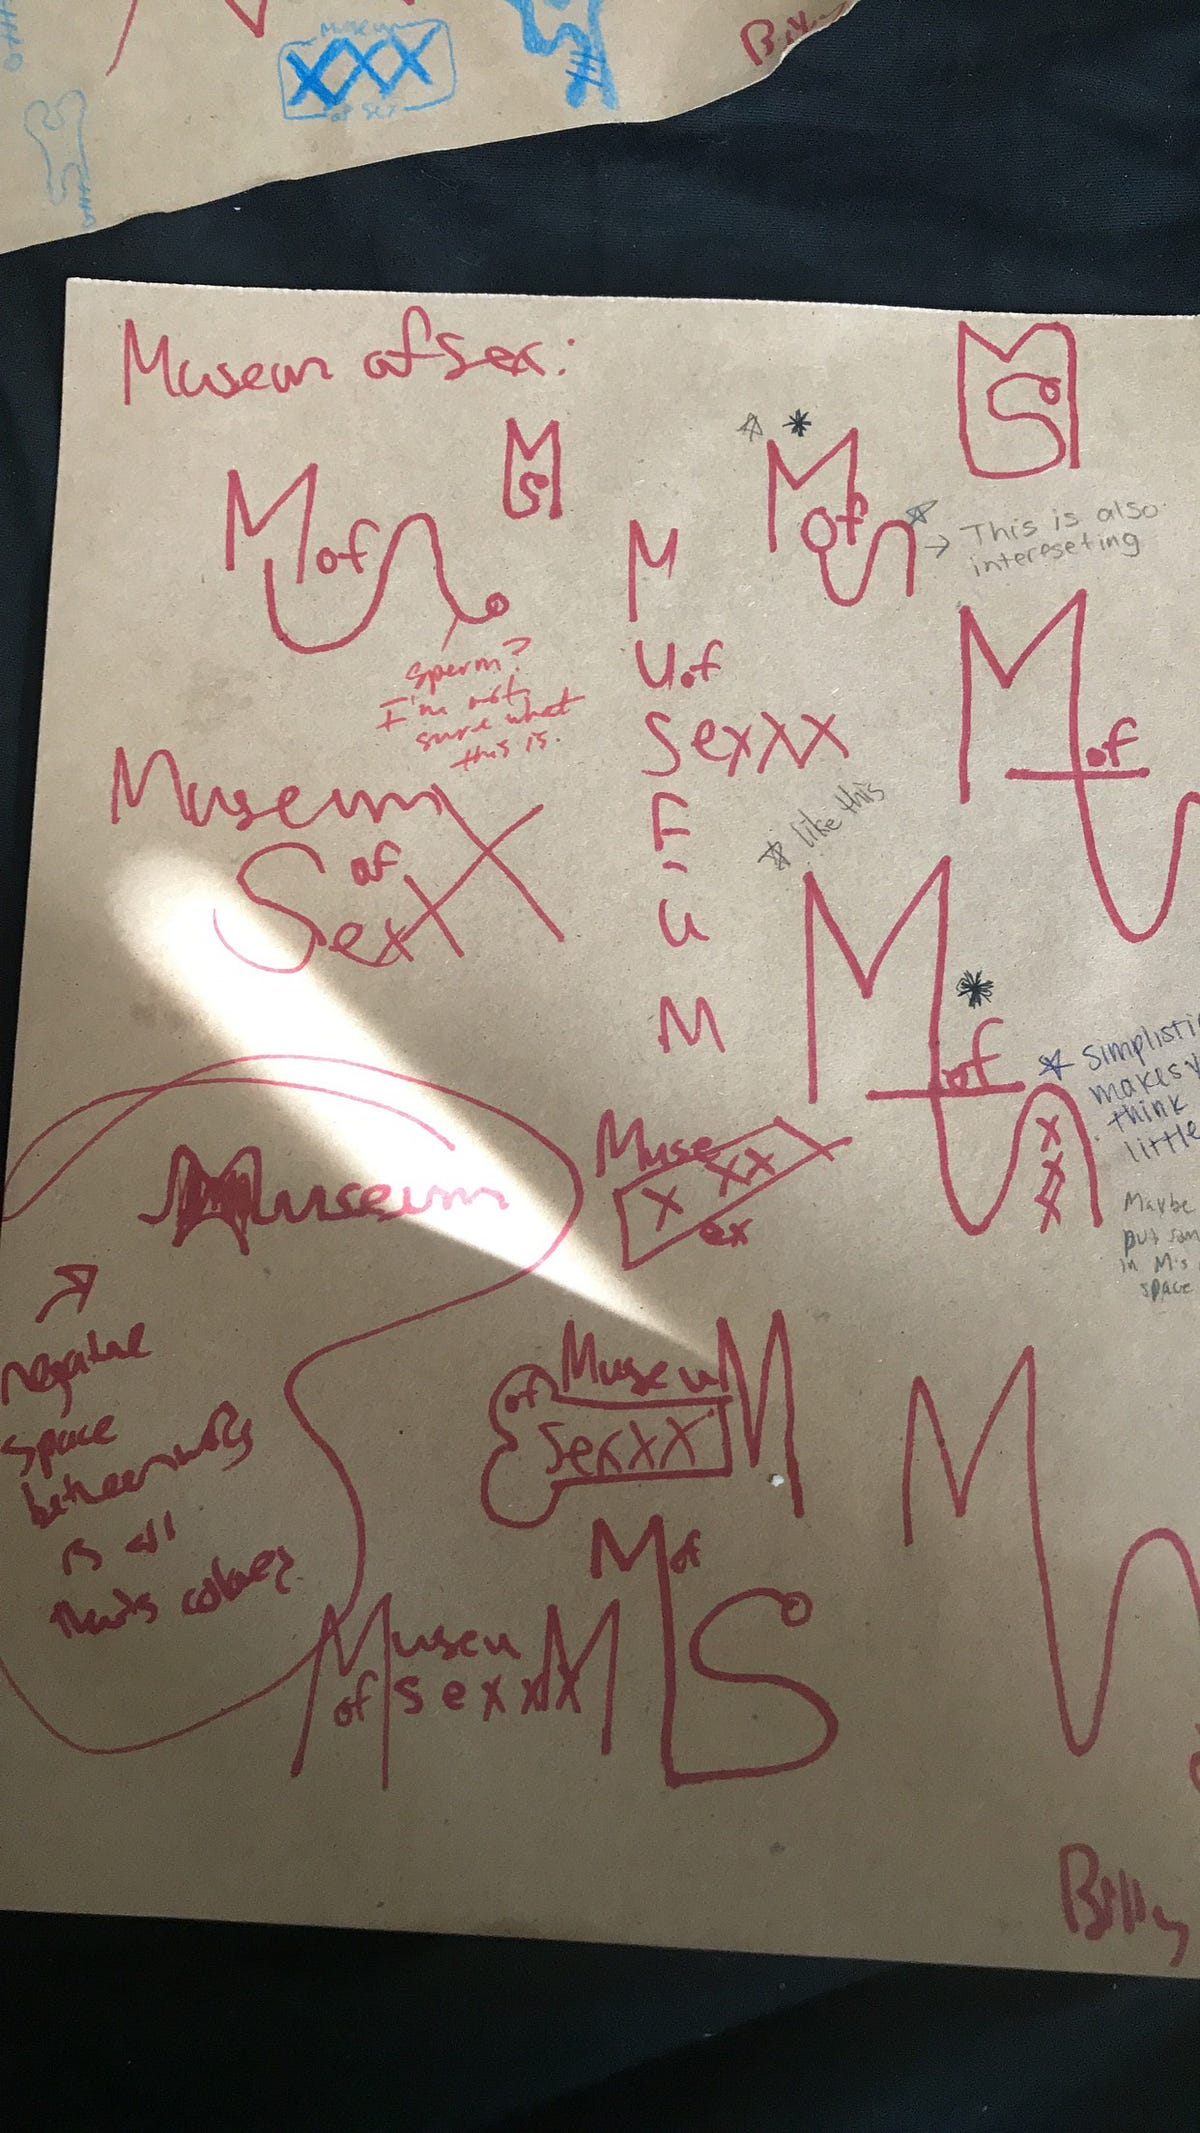 Museum
XXX
of sex
Museum of sex:
M of
MS
M of
MS
This is also
intereseting
sperm?
I'm not
sure what
this is.
M
U of
Sexxx
M of
Museum
of
Sexxx
like this
M of
simplisti
makes y
think
little
XXX
Maybe
put som
in M's
space
Museum
negative
space
between
is all
Muse
XXX
ex
Museum
of
Sexxx
M of
S
Museum
of sexxx
M
Billy